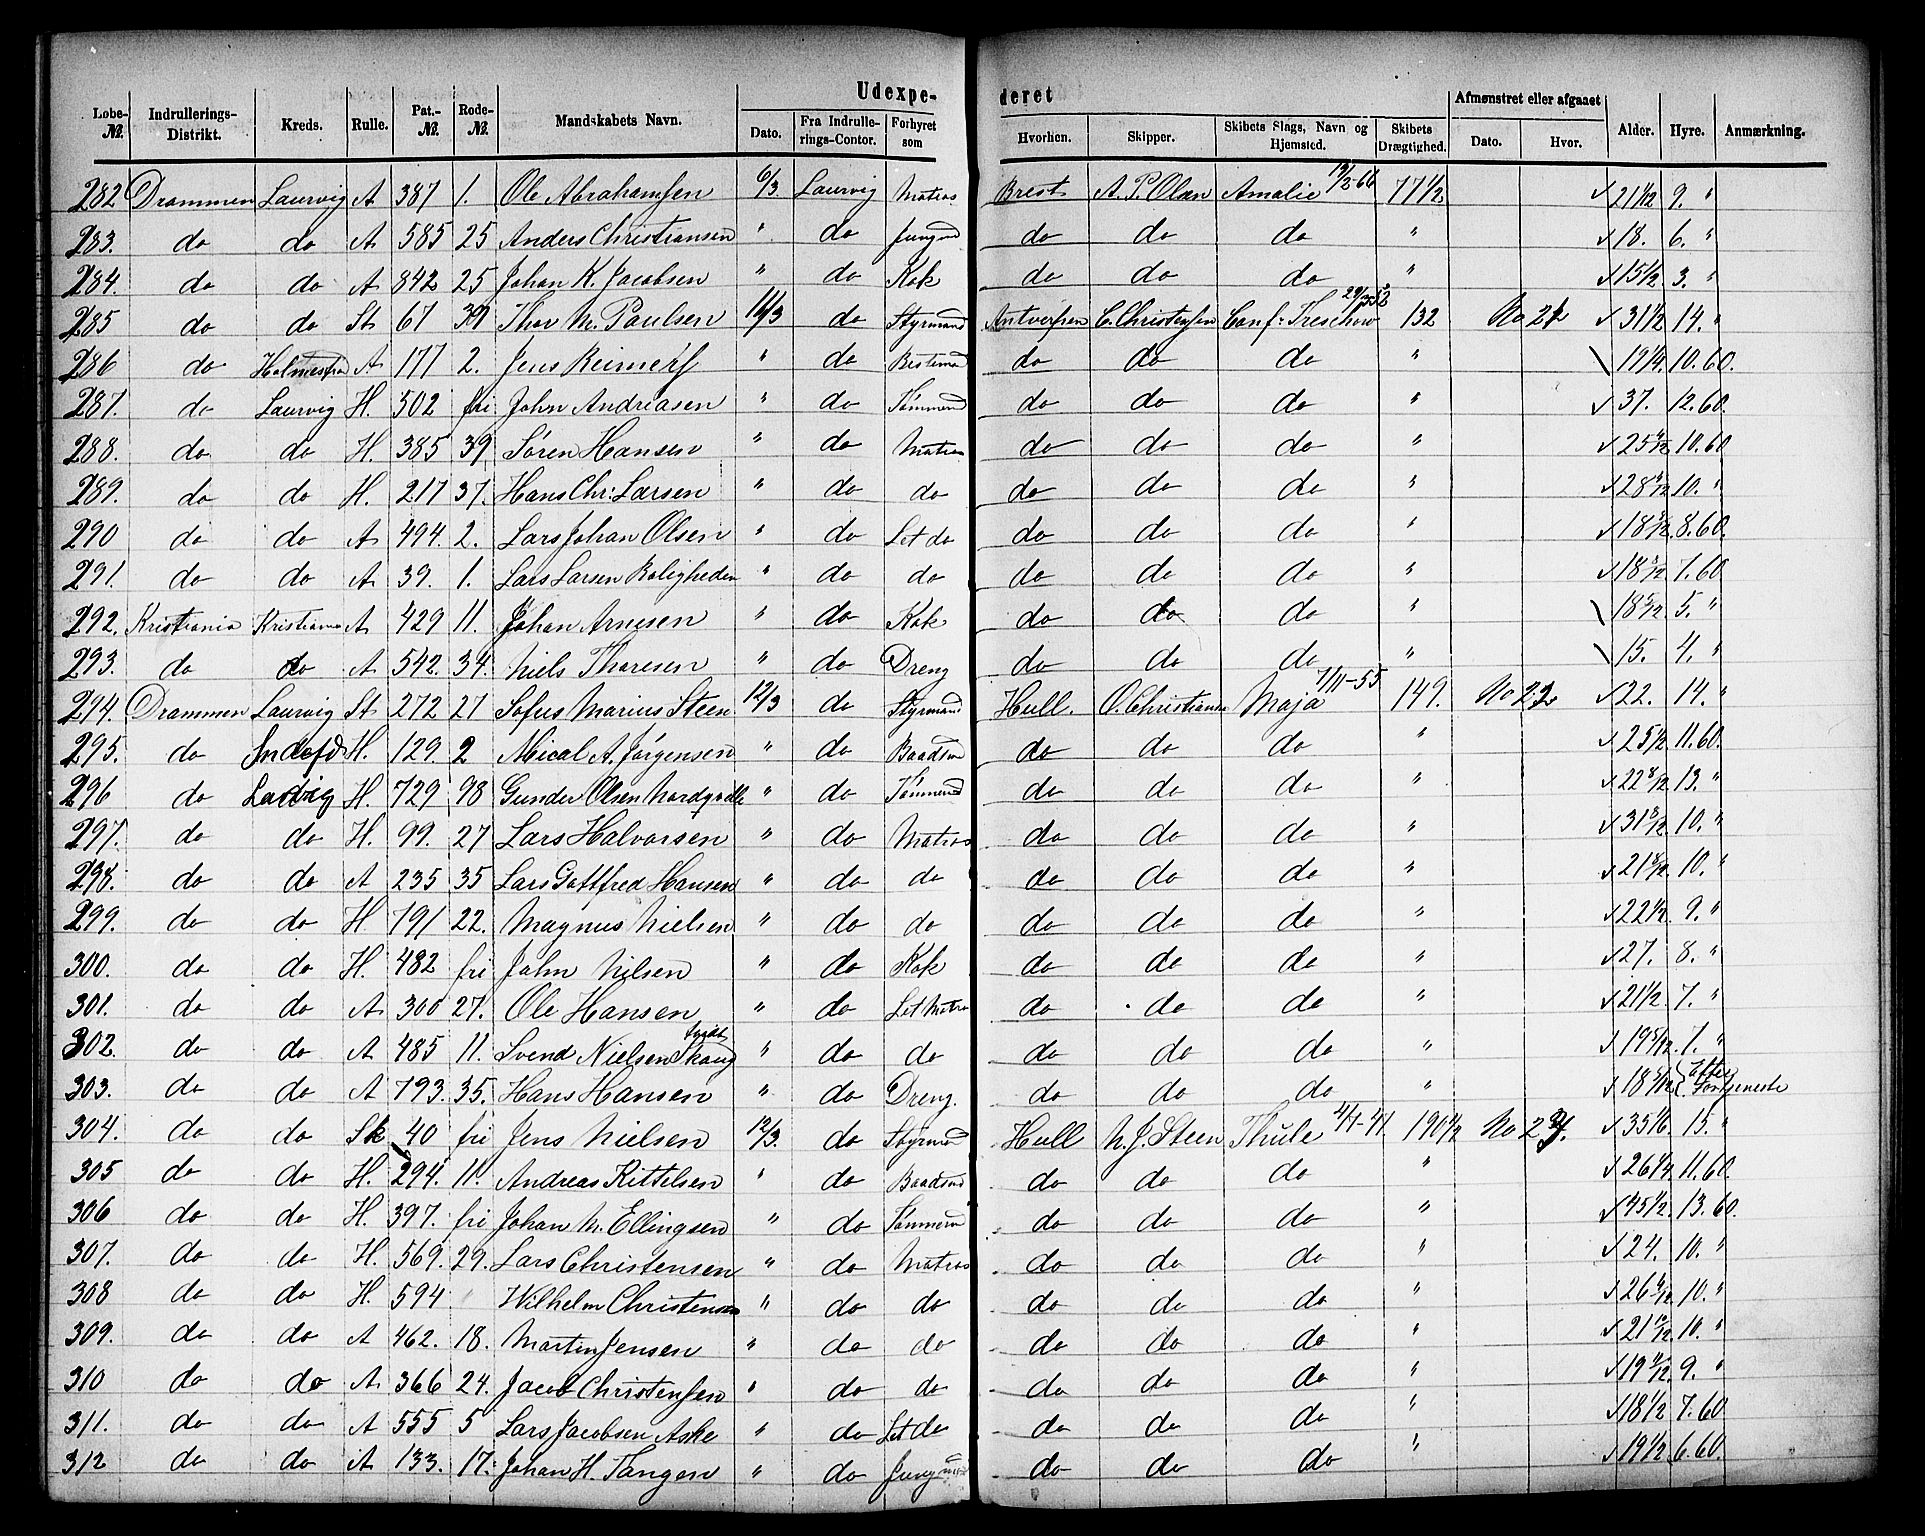 Udexpederet
Løbe-№. Indrullerings-Distrikt. Kreds. Rulle. Pat.-№. Rode-№. Mandskabets Navn. Dato. Fra Indrullerings-Contor. Forhyret som Hvorhen. Skipper. Skibets Slags, Navn og Hjemsted. Skibets Drægtighed. Afmønstret eller afgaaet Dato. Hvor. Alder. Hyre. Anmærkning.
282 Drammen Laurvig A 387 1. Ole Abrahamsen 6/3 Laurvig Matros Brest A. P. Olsen Amalie 77 1/2 21 1/12 9. "
283. do do A 585 25 Anders Christiansen " do Jungmd do do do " 18. 6. "
284. do do A 842 25 Johan K. Jacobsen " do Kok do do do " 15 1/2 3. "
285 do do St 67 39 Thor M. Paulsen 11/3 do Styrmand Antverpen C. Christensen Conf: Treschow 132 No 31 1/2 14. "
286 do Holmestrand A 177 2. Jens Reimers " do Bestmd do do do " 19 1/4 10.60.
287. do Laurvig H. 502 fri John Andreasen " do Tømmermd do do do " 37. 12.60.
288. do do H. 385 39 Søren Hansen " do Matros do do do " 25 10.60
289. do do H. 217 37. Hans Chr: Larsen " do do do do do " 28 10. "
290 do do A 494. 2. Lars Johan Olsen " do Let do do do do " 18 8.60.
291. do do A 39. 1. Lars Larsen Boligheden " do do do do do " 18 7.60
292. Kristiania Kristiania A 429 11. Johan Arnesen " do Kok do do do " 18 5/12 5. "
293. do do A 542. 34. Niels Thoresen " do Dreng do do do " 15. 4. "
294. Drammen Laurvig St 272 27 Sofus Marius Steen 12/3 do Styrmand Hull. O. Christiansen Maja 7/11-55 149. No 22. 14. "
295. do H. 129. 2 Mical A. Jørgensen " do Baadsmd do do do " 25 1/2 11.60.
296 do Laurvig H. 729 98 Gunder Olsen " do Tømmermd do do do " 22 8/12 13. "
297. do do H. 99. 27 Lars Halvorsen " do Matros do do do " 31 8/12 10. "
298. do do A 235 35 Lars Gottfred Hansen " do do do do do " 21 8/12 10. "
299. do do H. 791 22. Magnus Nielsen " do do do do do " 22 1/2 9. "
300. do do H. 482 fri John Nilsen " do Kok do do do " 27. 8. "
301. do do A 300 27. Ole Hansen " do Let Matros do do do " 21 1/2 7. "
302. do do A 485 11. Svend Nielsen Skaug " do do do do do " 19 7. "
303. do do A 793. 35. Hans Hansen " do Dreng. do do do " 18 Efter Fortjeneste
304. do do Sk 40 fri Jens Nielsen 12/3. do Styrmd Hull N. J. Steen Thule 4/1-41 190 1/2 No 35 1/6 15. "
305 do do H. 294. 11. Andreas Kittelsen " do Baadsmd do do do " 26 11.60.
306 do do H. 397. fri Johan M. Ellingsen " do Tømmermd do do do " 45 1/2 13.60.
307. do do H. 569. 29. Lars Christensen " do Matros do do do " 24. 10. "
308 do do H. 594 Wilhelm Christensen " do do do do do " 26 10. "
309. do do A 462. 18. Martin Jensen " do do do do do " 21 10/12 10. "
310 do do A 366 24. Jacob Christensen " do do do do do " 19 9. "
311. do do A 555 5 Lars Jacobsen Aske " do Let do do do do " 18 1/2 7.60
312 do do A 133. 17. Johan H. Tangen " do Jungmd do do do " 19 1/2 6.60.